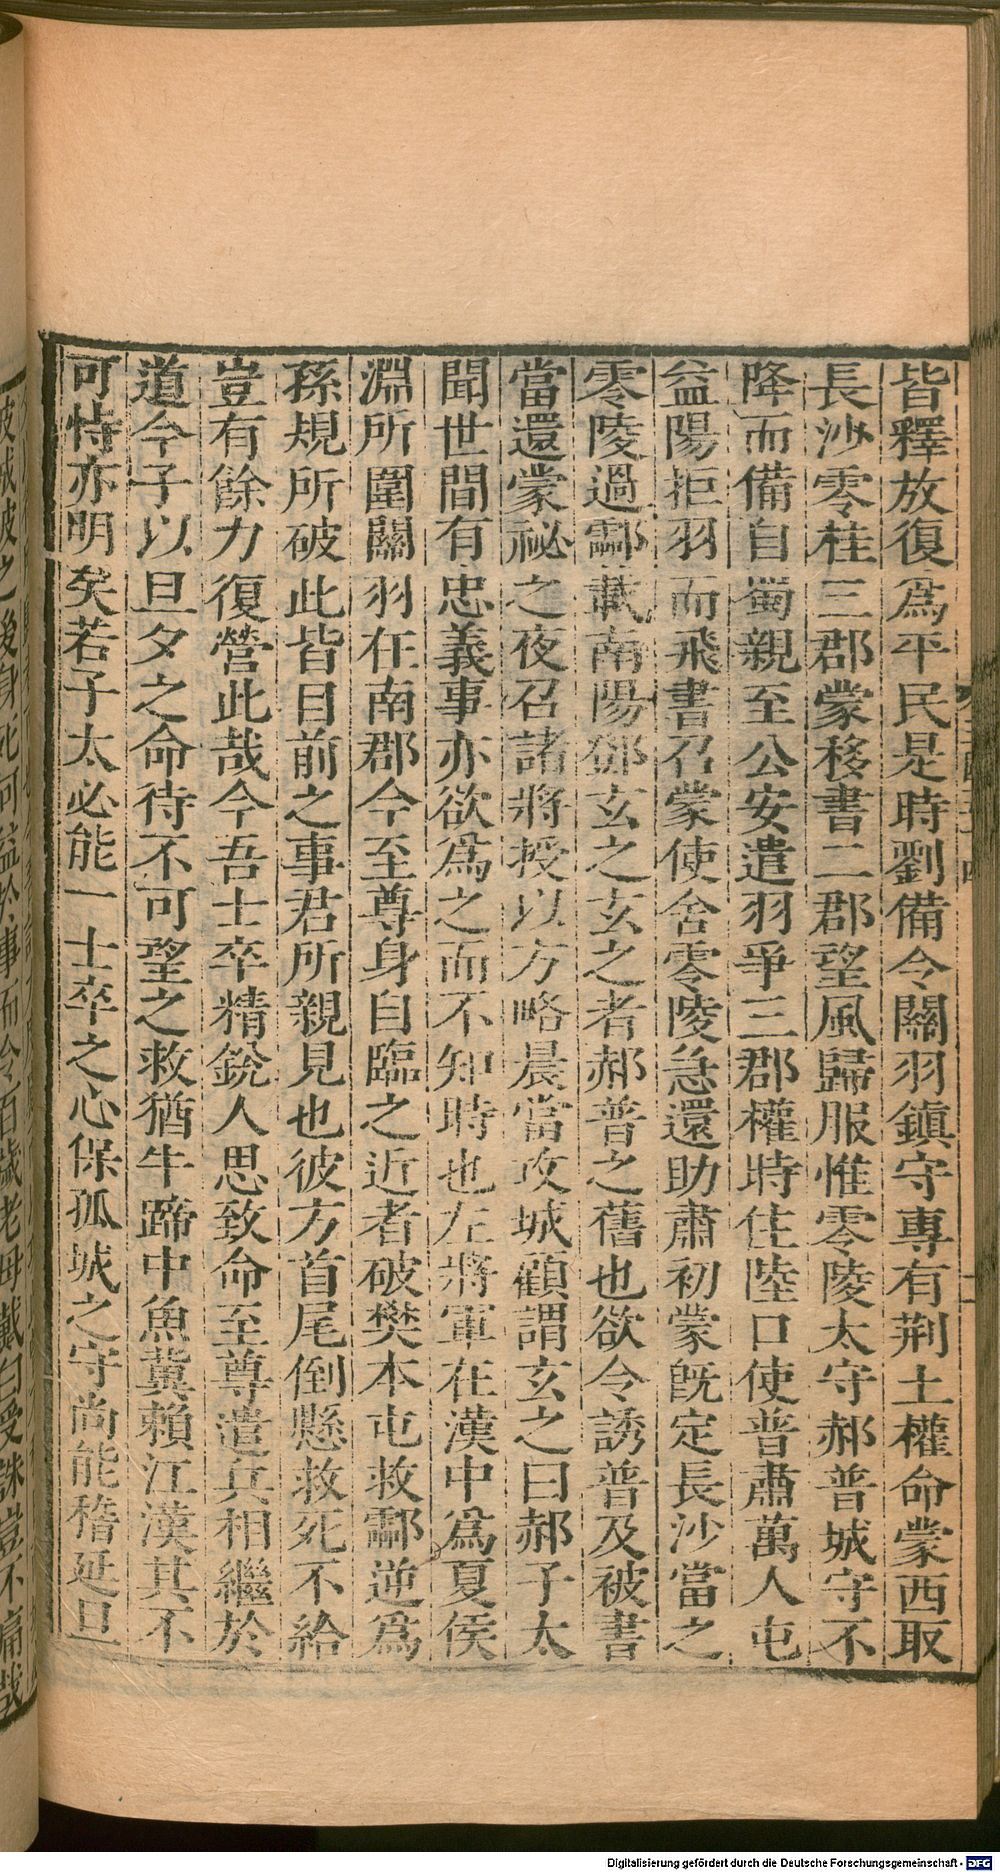 皆釋放復爲平民是時劉備令關羽鎮守專有荆土權命蒙西取
長沙零桂三郡蒙移書二郡望風歸服惟零陵太守郝普城守不
降而備自蜀親至公安遣羽爭三郡權時住陸口使魯肅萬人屯
益陽拒羽而飛書召蒙使舍零陵急還助肅初蒙旣定長沙當之
零陵過酃載南陽鄧玄之玄之者郝普之舊也欲令誘普及被書
當還蒙祕之夜召諸將授以方略晨當攻城顧謂玄之曰郝子太
聞世間有忠義事亦欲爲之而不知時也左將軍在漢中爲夏侯
淵所圍關羽在南郡今至尊身自臨之近者破樊本屯救酃逆爲
孫規所破此皆目前之事君所親見也彼方首尾倒懸救死不給
豈有餘力復營此哉今吾士卒精銳人思致命至尊遣兵相繼於
道今子以旦夕之命待不可望之救猶牛蹄中魚冀賴江漢其不
可恃亦明矣若子太必能一士卒之心保孤城之守尚能稽延旦
Digitalisierung gefördert durch die Deutsche Forschungsgemeinschaft - DFG